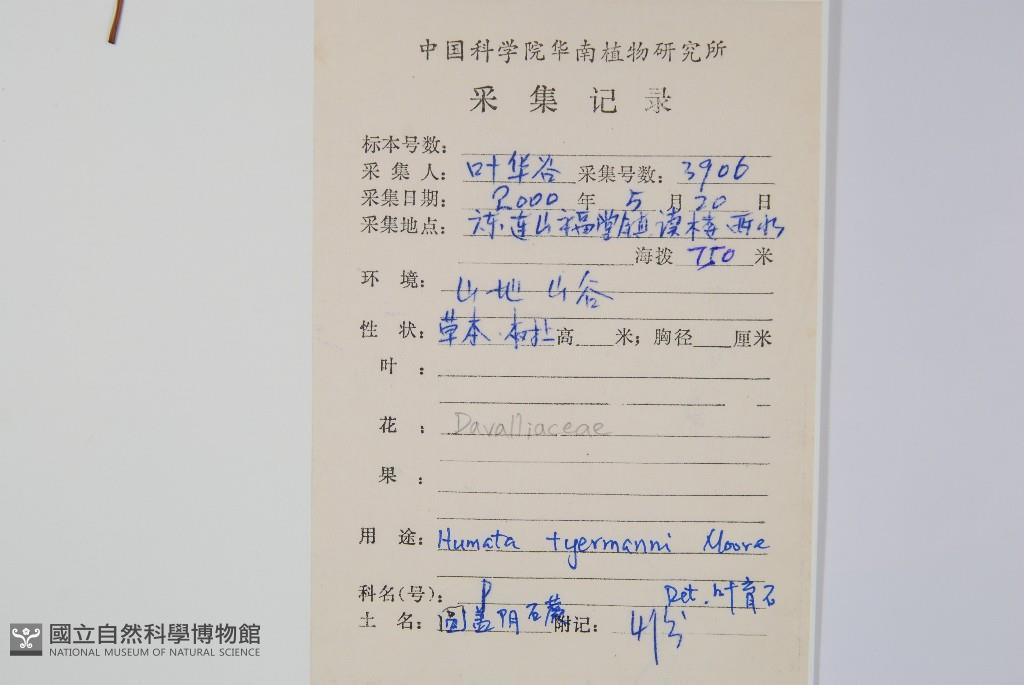 中国科学院华南植物研究所
采集记录
标本号数：
采集人：叶华谷 采集号数：3906
采集日期：2000年5月20日
采集地点：连山福堂镇读楼西水
海拨 750 米
环境：山地 山谷
性状：草本 高 米；胸径 厘米
叶：
花：Davalliaceae
果：
用途：Humata tyermanni Moore
科名(号)：P Det. 叶育石
土名：圆盖阴石蕨 附记：41份
國立自然科學博物館
NATIONAL MUSEUM OF NATURAL SCIENCE